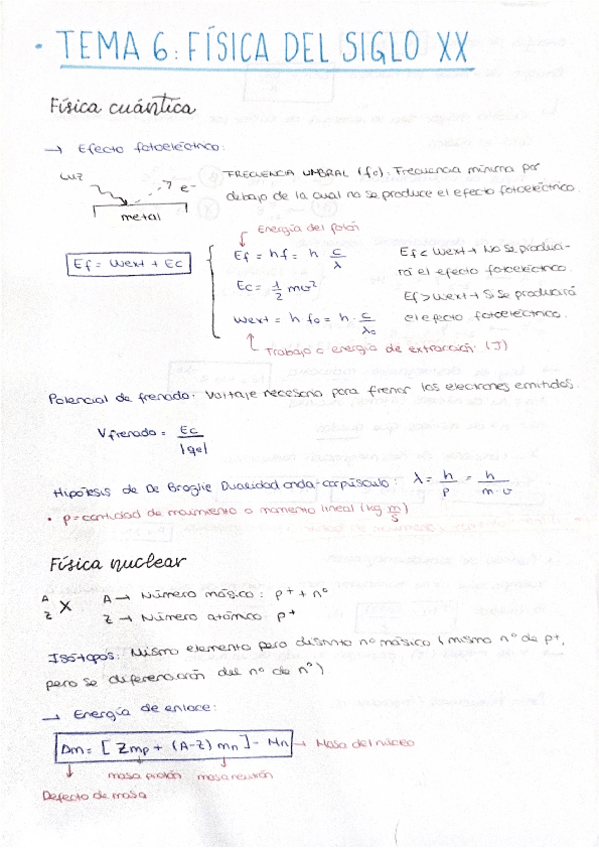 · TEMA 6: FÍSICA DEL SIGLO XX
Física cuántica
→ Efecto fotoeléctrico:
LUZ
e-
metal
FRECUENCIA UMBRAL (fo). Frecuencia mínima por
debajo de la cual no se produce el efecto fotoeléctrico.
Energía del fotón
Ef = Wext + Ec
Ef = hf = h c/λ
Ec = 1/2 mv²
Wext = h fo = h · c/λo
Trabajo o energía de extracción. (J)
Ef < Wext → No se produci-
rá el efecto fotoeléctrico.
Ef > Wext → Si se producirá
el efecto fotoeléctrico.
Potencial de frenado: Voltaje necesario para frenar los electrones emitidos.
Vfrenado = Ec/|qe|
Hipótesis de De Broglie Dualidad onda-corpúsculo: λ = h/p = h/m·v
· p = cantidad de movimiento o momento lineal (kg m/s)
Física nuclear
A
Z X
A → Número másico: p+ + nº
Z → Número atómico: p+
Isótopos: Mismo elemento pero distinto nº másico (mismo nº de p+,
pero se diferenciarán del nº de nº)
→ Energía de enlace:
Δm = [Zmp + (A-Z) mn] - Mn → Masa del núcleo
masa protón masa neutrón
Defecto de masa